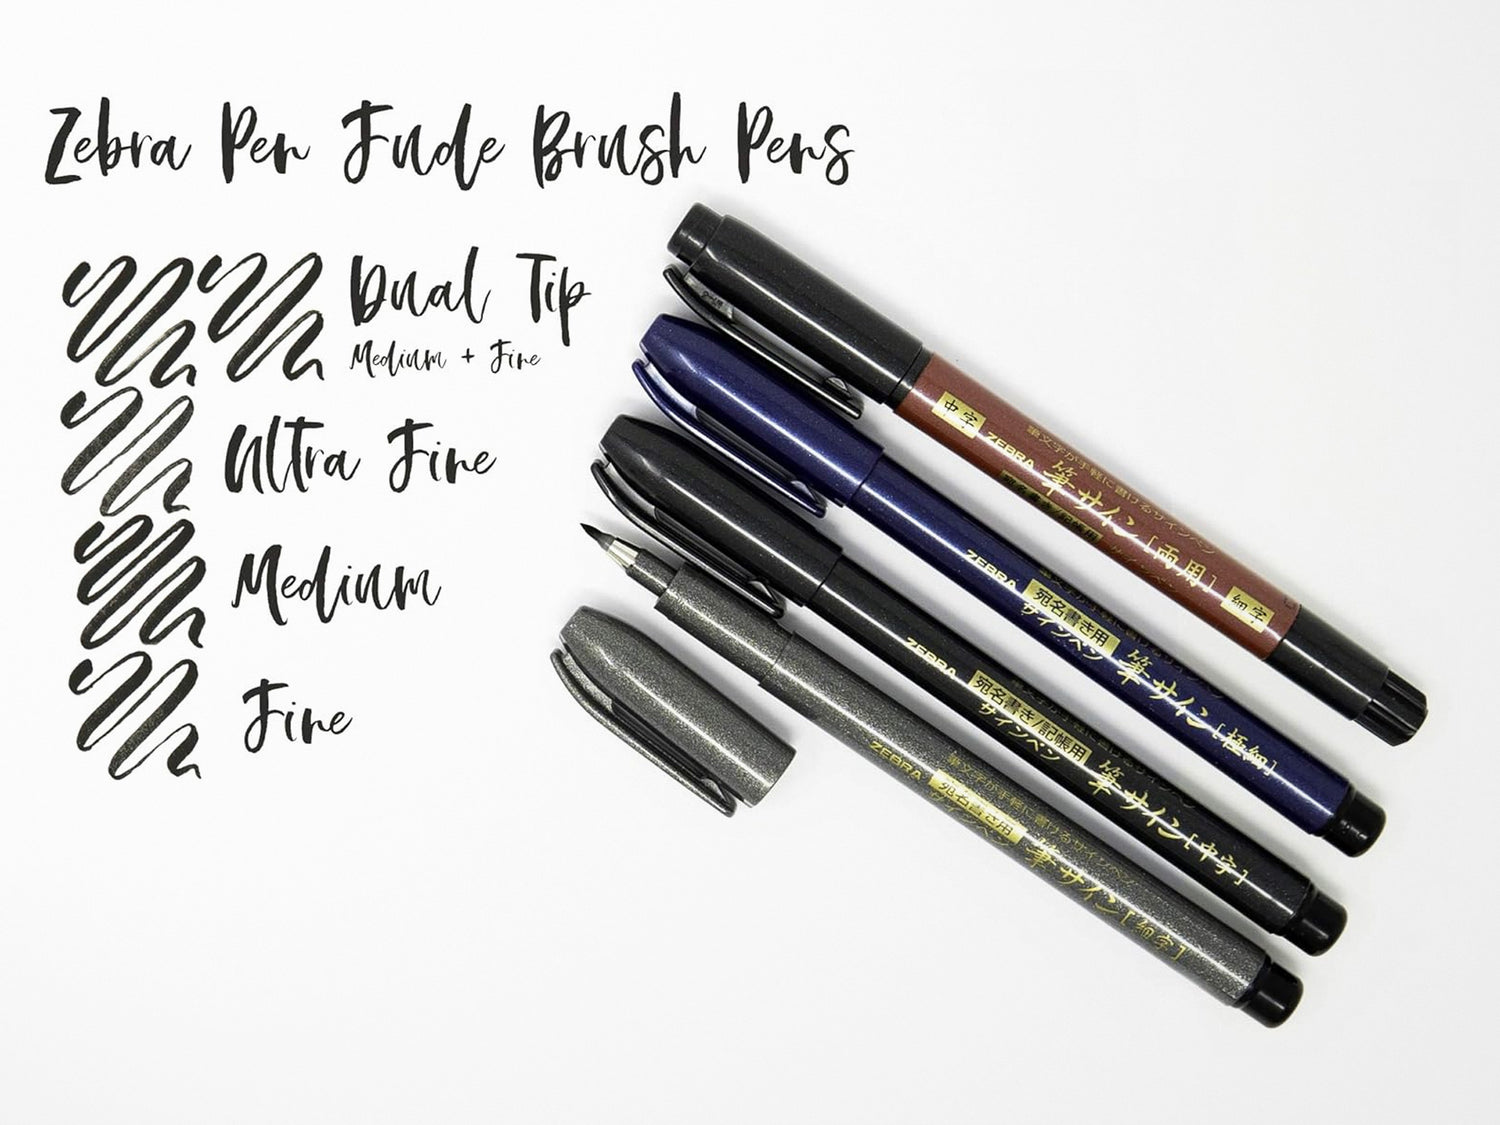 Zebra Pen Fude Brush Pens
Dual Tip
Medium + Fine
Ultra Fine
Medium
Fine
中字
ZEBRA
筆文字が手軽に書けるサインペン
筆サイン[両用]
宛名書き/記帳用
サインペン
細字
ZEBRA
宛名書き用
サインペン
筆サイン[極細]
ZEBRA
宛名書き/記帳用
サインペン
筆サイン[中字]
ZEBRA
筆文字が手軽に書けるサインペン
宛名書き用
サインペン
筆サイン[細字]